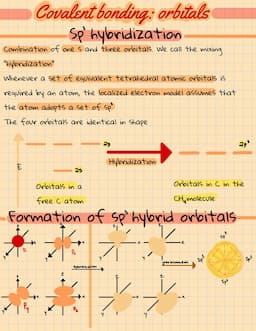 Covalent bonding: orbitals
Sp³ hybridization
Combination of one s and three orbitals. We call the mixing
"hybridization"
Whenever a set of equivalent tetrahedral atomic orbitals is
required by an atom, the localized electron model assumes that
the atom adopts a set of sp³
The four orbitals are identical in shape
E
2p
2s
Hybridization
Orbitals in a
free C atom
Orbitals in C in the
CH₄ molecule
Formation of sp³ hybrid orbitals